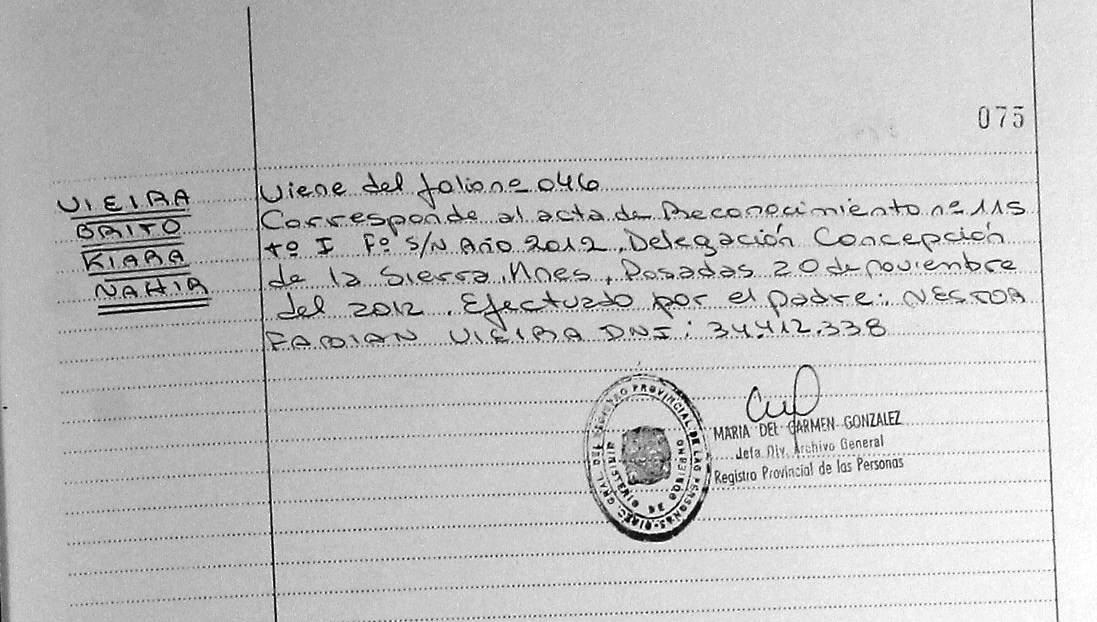 075
VIEIRA
BRITO
KIARA
NAHIR
Viene del folio nº 046
Corresponde al acta de Reconocimiento nº 115
tº I Fº S/N Año 2012, Delegación Concepción
de la Sierra, Mnes, Posadas 20 de noviembre
del 2012. Efectuado por el padre: NESTOR
FABIAN VIEIRA DNI: 34.412.338
DIREC. GRAL DEL REGISTRO PROVINCIAL DE LAS PERSONAS
MINISTERIO DE GOBIERNO
MARIA DEL CARMEN GONZALEZ
Jefa Div. Archivo General
Registro Provincial de las Personas